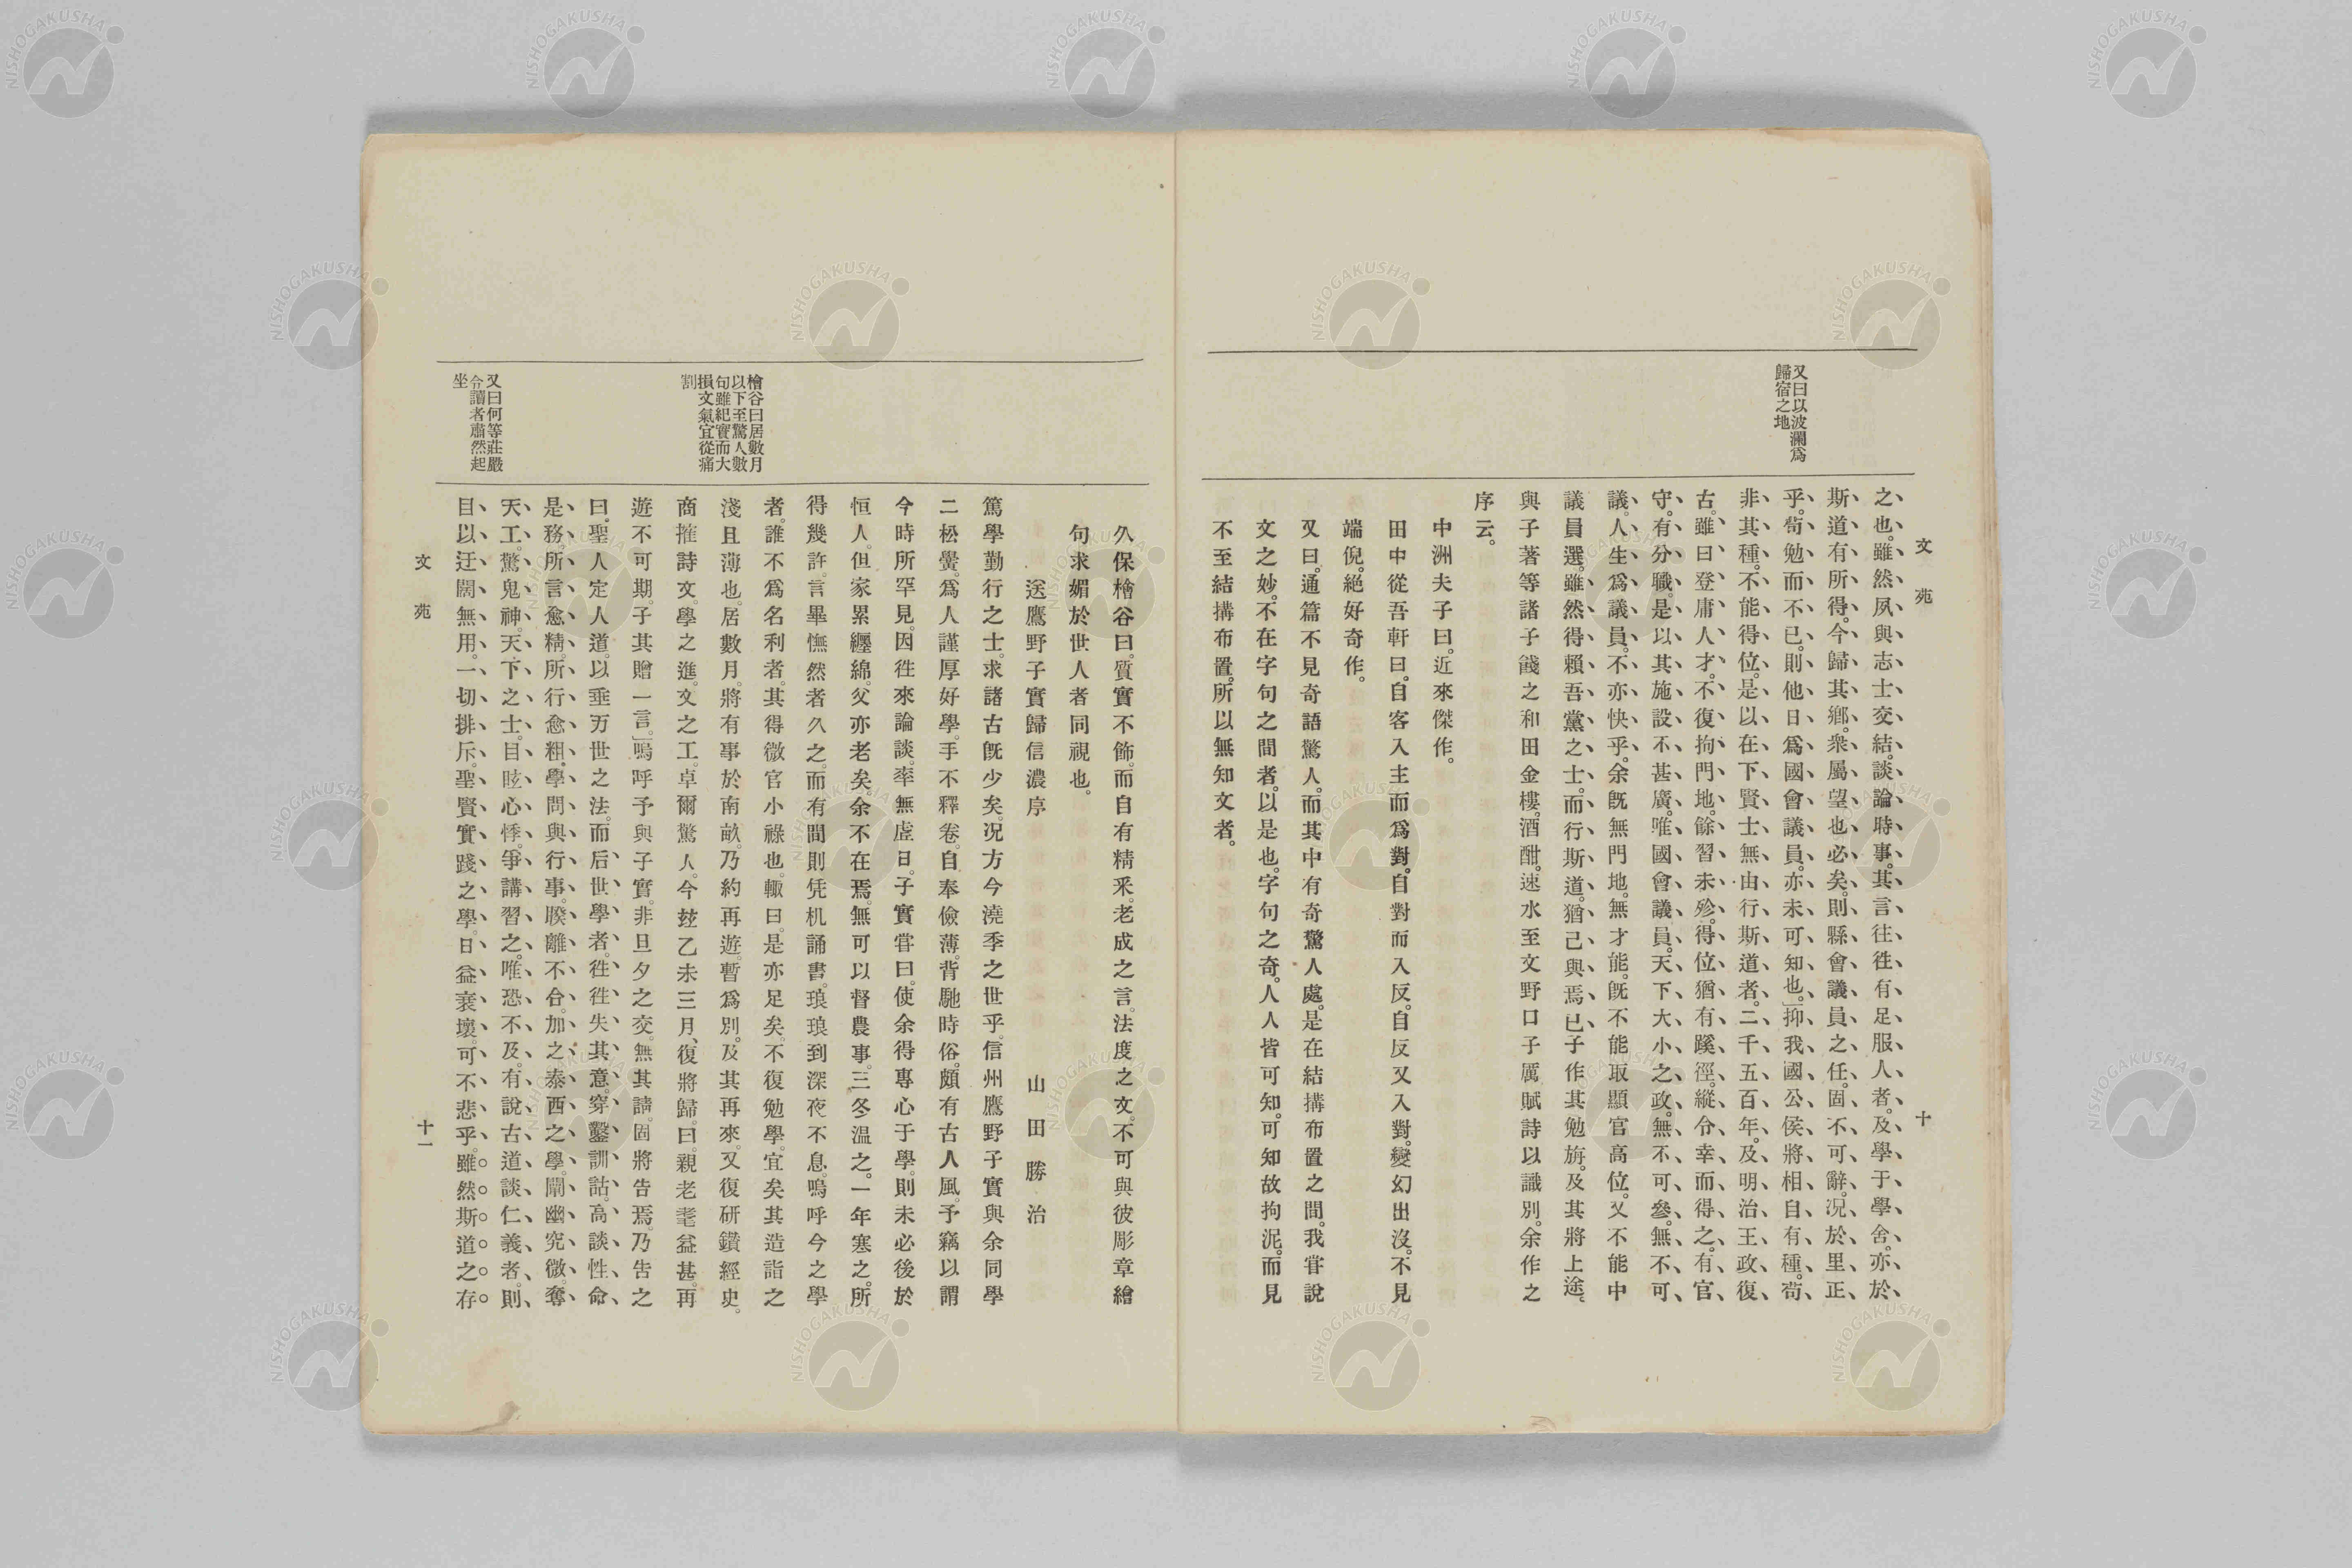 文苑
十
又曰以波瀾爲
歸宿之地
之也。雖然夙與志士交結。談論時事。其言往往有足服人者。及學于學舍。亦於
斯道有所得。今歸其鄕。衆屬望也必矣。則縣會議員之任。固不可辭。况於里正
乎。苟勉而不已。則他日爲國會議員。亦未可知也。」抑我國公侯將相自有種。苟
非其種。不能得位。是以在下賢士無由行斯道者。二千五百年。及明治王政復
古。雖曰登庸人才。不復拘門地。餘習未殄。得位猶有蹊徑。縱令幸而得之。有官
守。有分職。是以其施設不甚廣。唯國會議員。天下大小之政。無不可參。無不可
議。人生爲議員。不亦快乎。余旣無門地。無才能。旣不能取顯官高位。又不能中
議員選。雖然得賴吾黨之士。而行斯道。猶己與焉。已子作其勉旃。及其將上途。
與子著等諸子餞之和田金樓。酒酣。速水至文野口子厲賦詩以識別。余作之
序云。
中洲夫子曰。近來傑作。
田中從吾軒曰。自客入主而爲對。自對而入反。自反又入對。變幻出沒。不見
端倪。絕好奇作。
又曰。通篇不見奇語驚人。而其中有奇驚人處。是在結搆布置之間。我甞說
文之妙。不在字句之間者。以是也。字句之奇。人人皆可知。可知故拘泥。而見
不至結搆布置。所以無知文者。
久保檜谷曰。質實不飾。而自有精釆。老成之言。法度之文。不可與彼彫章繪
句求媚於世人者同視也。
送鷹野子實歸信濃序
山田勝治
篤學勤行之士。求諸古旣少矣。况方今澆季之世乎。信州鷹野子實與余同學
二松黌。爲人謹厚好學。手不釋卷。自奉儉薄。背馳時俗。頗有古人風。予竊以謂
今時所罕見。因徃來論談。率無虛日。子實甞曰。使余得專心于學。則未必後於
恒人。但家累纒綿。父亦老矣。余不在焉。無可以督農事。三冬温之。一年寒之。所
得幾許。言畢憮然者久之。而有間則凭机誦書。琅琅到深夜不息。嗚呼今之學
者。誰不爲名利者。其得微官小祿也。輙曰。是亦足矣。不復勉學。宜矣其造詣之
淺且薄也。居數月。將有事於南畝。乃約再遊。暫爲別。及其再來。又復研鑽經史。
商搉詩文。學之進。文之工。卓爾驚人。今玆乙未三月、復將歸。曰。親老耄益甚。再
遊不可期。子其贈一言。」嗚呼予與子實。非旦夕之交。無其請。固將告焉。乃告之
曰。聖人定人道。以垂万世之法。而后世學者。徃徃失其意。穿鑿訓詁。高談性命、
是務。所言愈精。所行愈粗。學問與行事。睽離不合。加之泰西之學。闡幽究微。奪
天工。驚鬼神。天下之士。目眩心悸。爭講習之。唯恐不及。有說古道談仁義者。則
目以迂闊無用。一切排斥。聖賢實踐之學。日益衰壞。可不悲乎。雖然斯道之存
檜谷曰居數月
以下至驚人數
句雖紀實而大
損文氣宜從痛
割
又曰何等莊嚴
令讀者肅然起
坐
文苑
十一
NISHOGAKUSHA